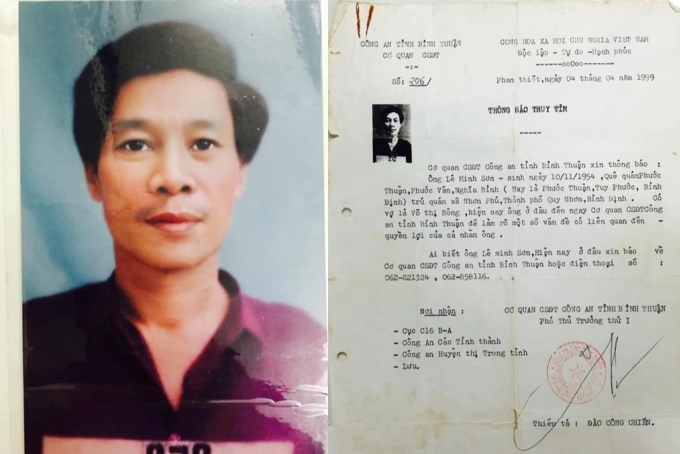 070
CÔNG AN TỈNH BÌNH THUẬN
CƠ QUAN CSĐT
-:-
Số: 206/
CỘNG HOÀ XÃ HỘI CHỦ NGHĨA VIỆT NAM
Độc lập - Tự do - Hạnh phúc
------oo0oo------
Phan thiết, ngày 04 tháng 04 năm 1999
THÔNG BÁO TRUY TÌM
-----
Cơ quan CSĐT Công an tỉnh Bình Thuận xin thông báo :
Ông Lê Minh Sơn - sinh ngày 10/11/1954 ,Quê quán Phước
Thuận,Phước Vân,Nghĩa Bình ( Nay là Phước Thuận,Tuy Phước, Bình
Định) trú quán xã Nhơn Phú,Thành phố Quy Nhơn,Bình Định . Có
vợ là Võ thị Bông ,hiện nay ông ở đâu đến ngay Cơ quan CSĐTCông
an tỉnh Bình Thuận để làm rõ một số vấn đề có liên quan đến -
quyền lợi của cá nhân ông .
Ai biết ông lê minh Sơn,Hiện nay ở đâu xin báo về
Cơ quan CSĐT Công an tỉnh Bình Thuận hoặc điện thoại số :
062-821324 , 062-858116.
Nơi nhận :
- Cục C16 B-A
- Công An Các Tỉnh thành
- Công an Huyện thị Trong tỉnh
- Lưu.
CƠ QUAN CSĐT CÔNG AN TỈNH BÌNH THUẬN
Phó Thủ Trưởng thứ I
Thiếu tá : ĐÀO CÔNG CHIẾN.